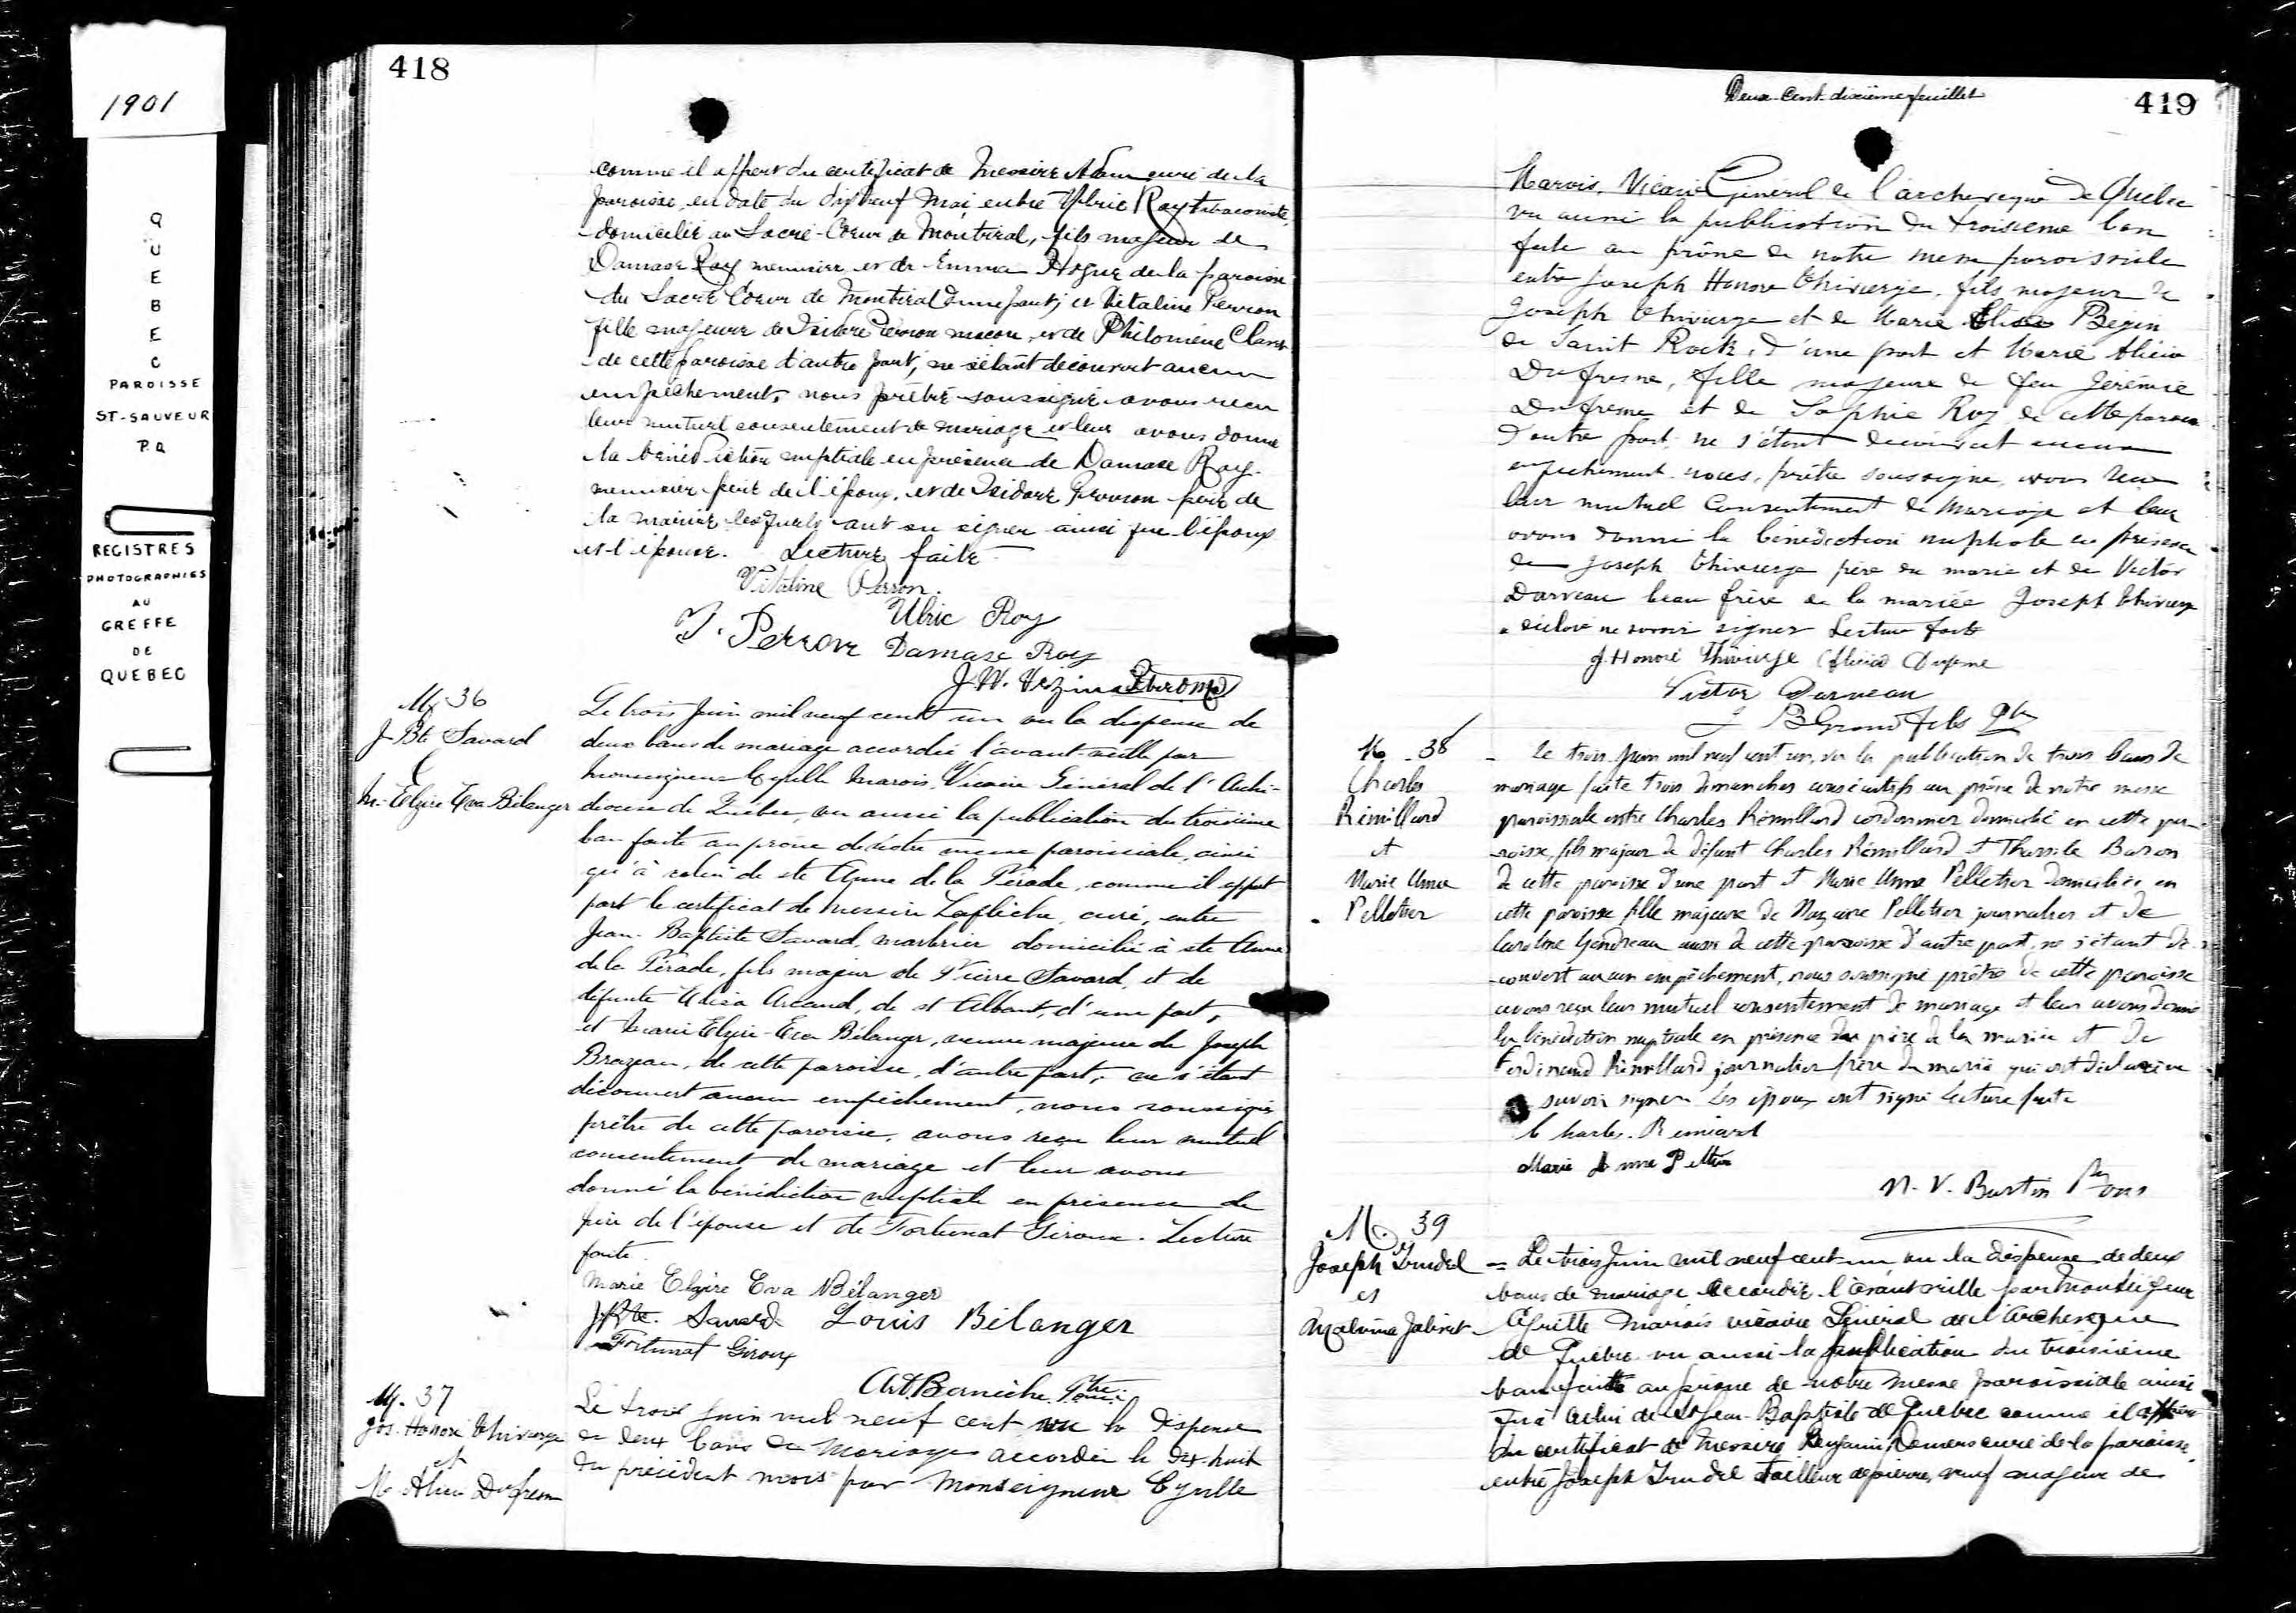 1901
QUEBEC
PAROISSE
ST-SAUVEUR
P.Q
REGISTRES
PHOTOGRAPHIES
AU
GREFFE
DE
QUEBEC
418
comme il appert du certificat de Messire Adam curé de la
paroisse, en date du dix neuf Mai, entre Ulric Roy tabaconiste,
domicilié au Sacré-Coeur de Montréal, fils majeur de
Damase Roy menuisier et de Emma Hogue de la paroisse
du Sacré Coeur de Montréal d'une part; et Vitaline Perron
fille majeure de Isidore Perron macon, et de Philomène
de cette paroisse d'autre part; ne s'étant découvert aucun
empêchement, nous prêtre soussigné avons recu
leur mutuel consentement de mariage et leur avons donné
la bénédiction nuptiale en présence de Damase Roy
menuisier père de l'époux, et de Isidore Perron père de
la mariée lesquels ont su signer ainsi que l'époux
et l'épouse. Lecture faite
Vitaline Perron.
Ulric Roy
I. Perron Damase Roy
J. W. Vezina
M. 36
J. Bte Savard
&
M. Elzire Eva Bélanger
Le trois Juin mil neuf cent un vu la dispense de
deux bans de mariage accordée l'avant-veille par
Monseigneur Cyrille Marois, Vicaire Général de l'Archi-
diocèse de Québec, vu aussi la publication du troisième
ban faite au prône de notre messe paroissiale, ainsi
qu'à celui de Ste Anne de la Pérade, comme il appert
par le certificat de messire Laflèche, curé, entre
Jean-Baptiste Savard, marbrier domicilié à Ste Anne
de la Pérade, fils majeur de Pierre Savard, et de
défunte Elisa Arcand, de St Alban, d'une part,
et Marie Elzire-Eva Bélanger, veuve majeure de Joseph
Brazeau, de cette paroisse, d'autre part, ne s'étant
découvert aucun empêchement, nous soussigné
prêtre de cette paroisse, avons reçu leur mutuel
consentement de mariage et leur avons
donné la bénédiction nuptiale en présence de
père de l'épouse et de Fortunat Giroux. Lecture
faite.
Marie Elzire Eva Bélanger
J. Bte. Savard Louis Bélanger
Fortunat Giroux
Art. Bernèche Ptre
M. 37
Jos. Honoré Thivierge
et
M. Alicia Dufresne
Le trois juin mil neuf cent vu la dispense
de deux bans de Mariage accordée le dix-huit
du précédent mois par Monseigneur Cyrille
Deux-Cent-dixième feuillet
419
Marois, Vicaire Général de l'archevêque de Québec
vu aussi la publication du troisième ban
faite au prône de notre messe paroissiale
entre Joseph Honoré Thivierge, fils majeur de
Joseph Thivierge et de Marie Elise Bégin
de Saint Roch, d'une part et Marie Alicia
Dufresne, fille majeure de feu Jérémie
Dufresne et de Sophie Roy de cette paroisse
d'autre part, ne s'étant découvert aucun
empêchement nous, prêtre soussigné, avons reçu
leur mutuel consentement de Mariage et leur
avons donné la bénédiction nuptiale en présence
de Joseph Thivierge père du marié et de Victor
Darveau beau frère de la mariée Joseph Thivierge
a déclaré ne savoir signer Lecture faite
J. Honoré Thivierge Alicia Dufresne
Victor Darveau
J B Grandfils Ptr
M. 38
Charles
Rémillard
et
Marie Anna
Pelletier
Le trois juin mil neuf cent un, vu la publication de trois bans de
mariage faite trois dimanches consécutifs au prône de notre messe
paroissiale entre Charles Rémillard cordonnier domicilié en cette pa-
roisse, fils majeur de défunt Charles Rémillard et Tharsile Baron
de cette paroisse d'une part et Marie Anna Pelletier domiciliée en
cette paroisse fille majeure de Nazaire Pelletier journalier et de
Caroline Gendreau aussi de cette paroisse d'autre part, ne s'étant dé-
couvert aucun empêchement, nous soussigné prêtre de cette paroisse
avons reçu leur mutuel consentement de mariage et leur avons donné
la bénédiction nuptiale en présence du père de la mariée et de
Ferdinand Rémillard journalier frère du marié qui ont déclaré ne
savoir signer. Les époux ont signé Lecture faite
Charles. Remiard
Marie Anna
N. V. Burtin
M. 39
Joseph Trudel
et
Malvina Jobinet
= Le trois Juin mil neuf cent-un vu la dispense de deux
bans de mariage accordée l'avant veille par Monseigneur
Cyrille Marois vicaire Général de l'Archevêque
de Québec vu aussi la publication du troisième
ban faite au prône de notre messe paroissiale ainsi
qu'à celui de St Jean-Baptiste de Québec comme il appert
du certificat de Messire Benjamin Demers curé de la paroisse,
entre Joseph Trudel tailleur de pierre, veuf majeur de